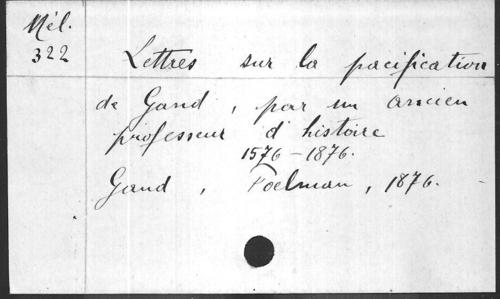 Mél.
322
Lettres sur la pacification
de Gand, par un ancien
professeur d'histoire
1576-1876.
Gand, Poelman, 1876.